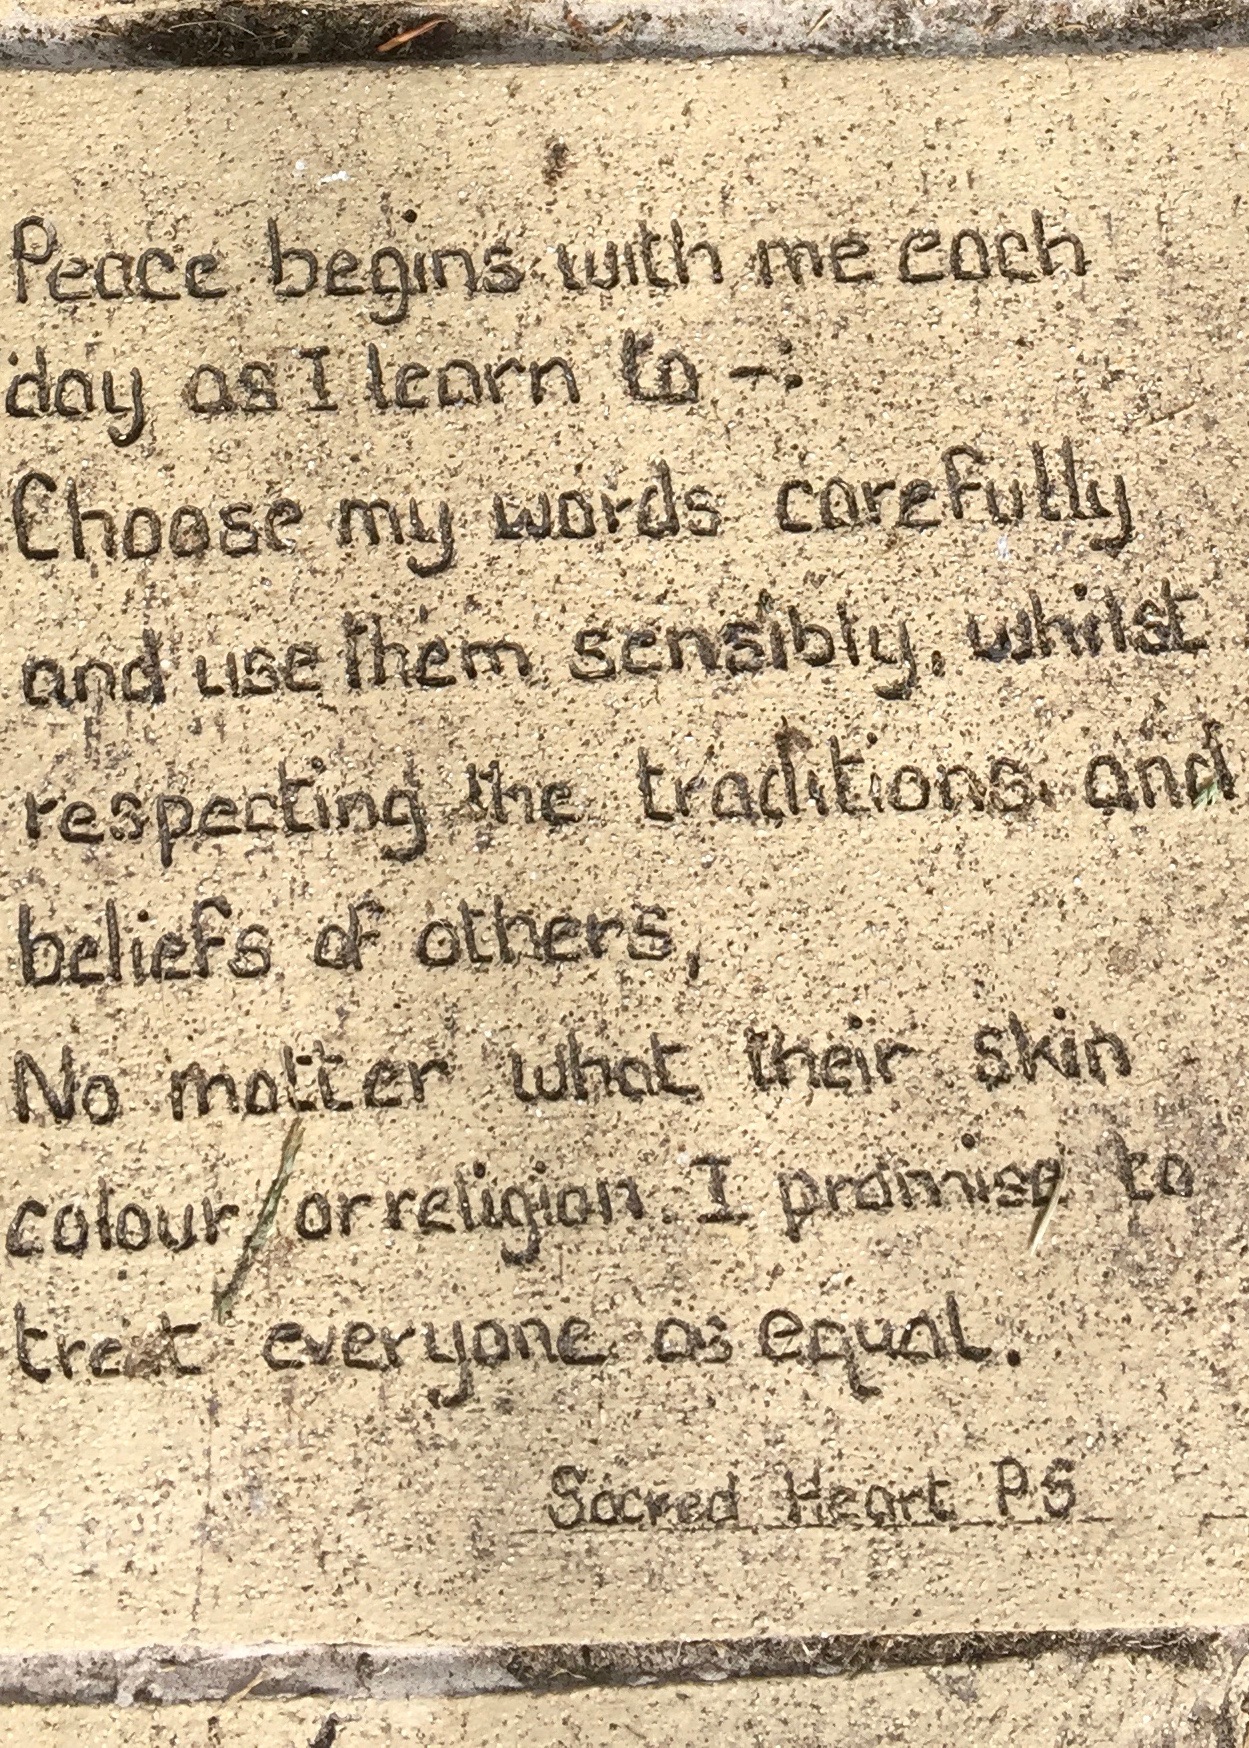 Peace begins with me each
day as I learn to -:
Choose my words carefully
and use them sensibly, whilst
respecting the traditions and
beliefs of others,
No matter what their skin
colour or religion. I promise to
treat everyone as equal.
Sacred Heart PS